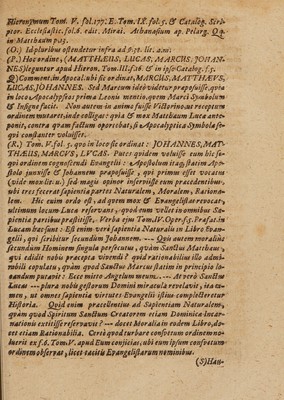 Hieronymum Tom. V. fol. 177. E. Tom. IX. fol. 5. & Catalog. Scri-
ptor. Ecclesiastic. fol. 8. edit. Mirai. Athanasium ap. Pelarg. Qq.
in Matthæum p. 15.
(O.) Id pluribus ostendetur infra ad §. 50. lit. a. xii.
(P.) Hoc ordine, (MATTHÆUS, LUCAS, MARCUS, JOHAN-
NES) leguntur apud Hieron. Tom. III. f. 28. & in ipso Catalog. f. 5.
Q) Comment. in Apocal. ubi sic ordinat, MARCUS, MATTHÆVS,
LUCAS, JOHANNES. Sed Marcum ideo videtur præposuisse, quia
in loco Apocalypseos prima Leonis mentio, quem Marci Symbolum
& Insigne facit. Non autem in animo fuisse Victorino, ut receptum
ordinem mutaret, inde colligas: quia & mox Matthæum Lucæ ante-
ponit, contra quam factum oportebat, si Apocalyptica Symbola se-
qui constanter voluisset.
(R.) Tom. V. fol. 5. quo in loco sic ordinat: JOHANNES, MAT-
THÆUS, MARCUS, LVCAS. Puto quidem voluisse eum hic se-
qui ordinem cognoscendi Evangelii: Apostolum itaq; statim Apo-
stolo junxisse & Johannem præposuisse, qui primus esset vocatus
(vide mox lit. u.) sed magis opinor inserviisse eum præcedentibus,
ubi tres fecerat sapientiæ partes Naturalem, Moralem, Rationa-
lem. Hic enim ordo est, ad quem mox & Evangelistas revocat,
ultimum locum Lucæ reservans, quod eum vellet in omnibus Sa-
pientiæ partibus præstitisse. Verba ejus Tom. IV. Oper. f. 9. Præfat. in
Lucam hæc sunt: Est enim verè sapientia Naturalis in Libro Evan-
gelii, qui scribitur secundùm Johannem. --- Quis autem moralia
secundùm Hominem singula persecutus, quàm Sanctus Matthæus,
qui edidit nobis præcepta vivendi? quid rationabilius illo admi-
rabili copulatu, quàm quod Sanctus Marcus statim in principio lo-
candum putavit: Ecce mitto Angelum meum. --- At verò Sanctus
Lucas --- plura nobis gestorum Domini miracula revelavit, ita ta-
men, ut omnes sapientiæ virtutes Evangelii istius complecteretur
Historia. Quid enim præcellentius ad Sapientiam Naturalem,
quàm quod Spiritum Sanctum Creatorem etiam Dominicæ Incar-
nationis extitisse reservavit? --- docet Moralia in eodem Libro, do-
cet etiam Rationabilia. Certè quod turbare consvetum ordinem no-
luerit ex f. d. Tom. V. apud Eum conjicias, ubi eum ipsum consvetum
ordinem observat, licet tacitis Evangelistarum nominibus.
(S) Han-